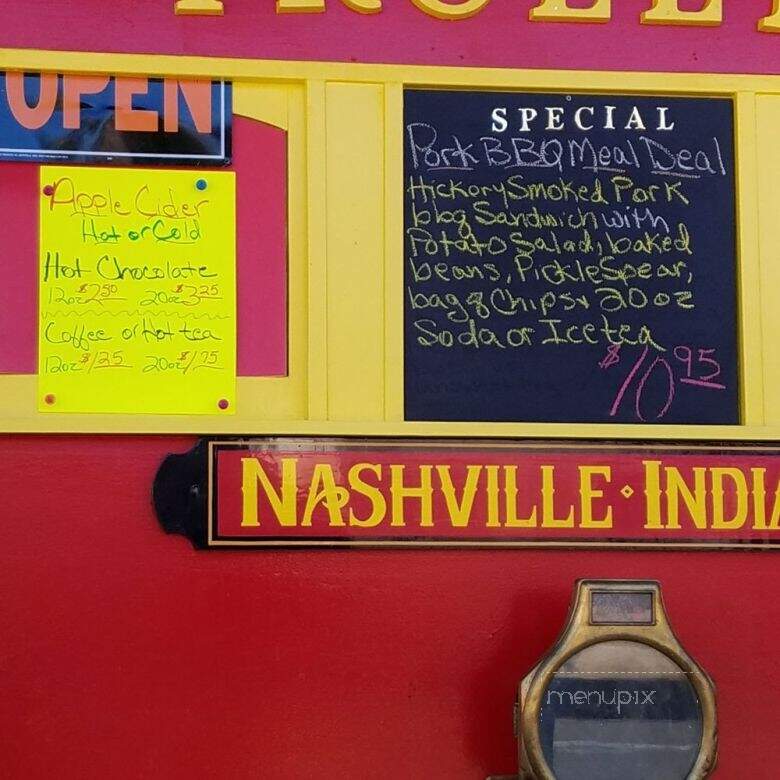 OPEN
Apple Cider
Hot or Cold
Hot Chocolate
12oz $2.50 20oz $3.25
Coffee or Hot tea
12oz $1.25 20oz $1.75
SPECIAL
Pork BBQ Meal Deal
Hickory Smoked Pork
bbq Sandwich with
Potato Salad, baked
beans, Pickle Spear,
bag of Chips & 20 oz
Soda or Ice tea
$10.95
NASHVILLE · INDIA
menupix